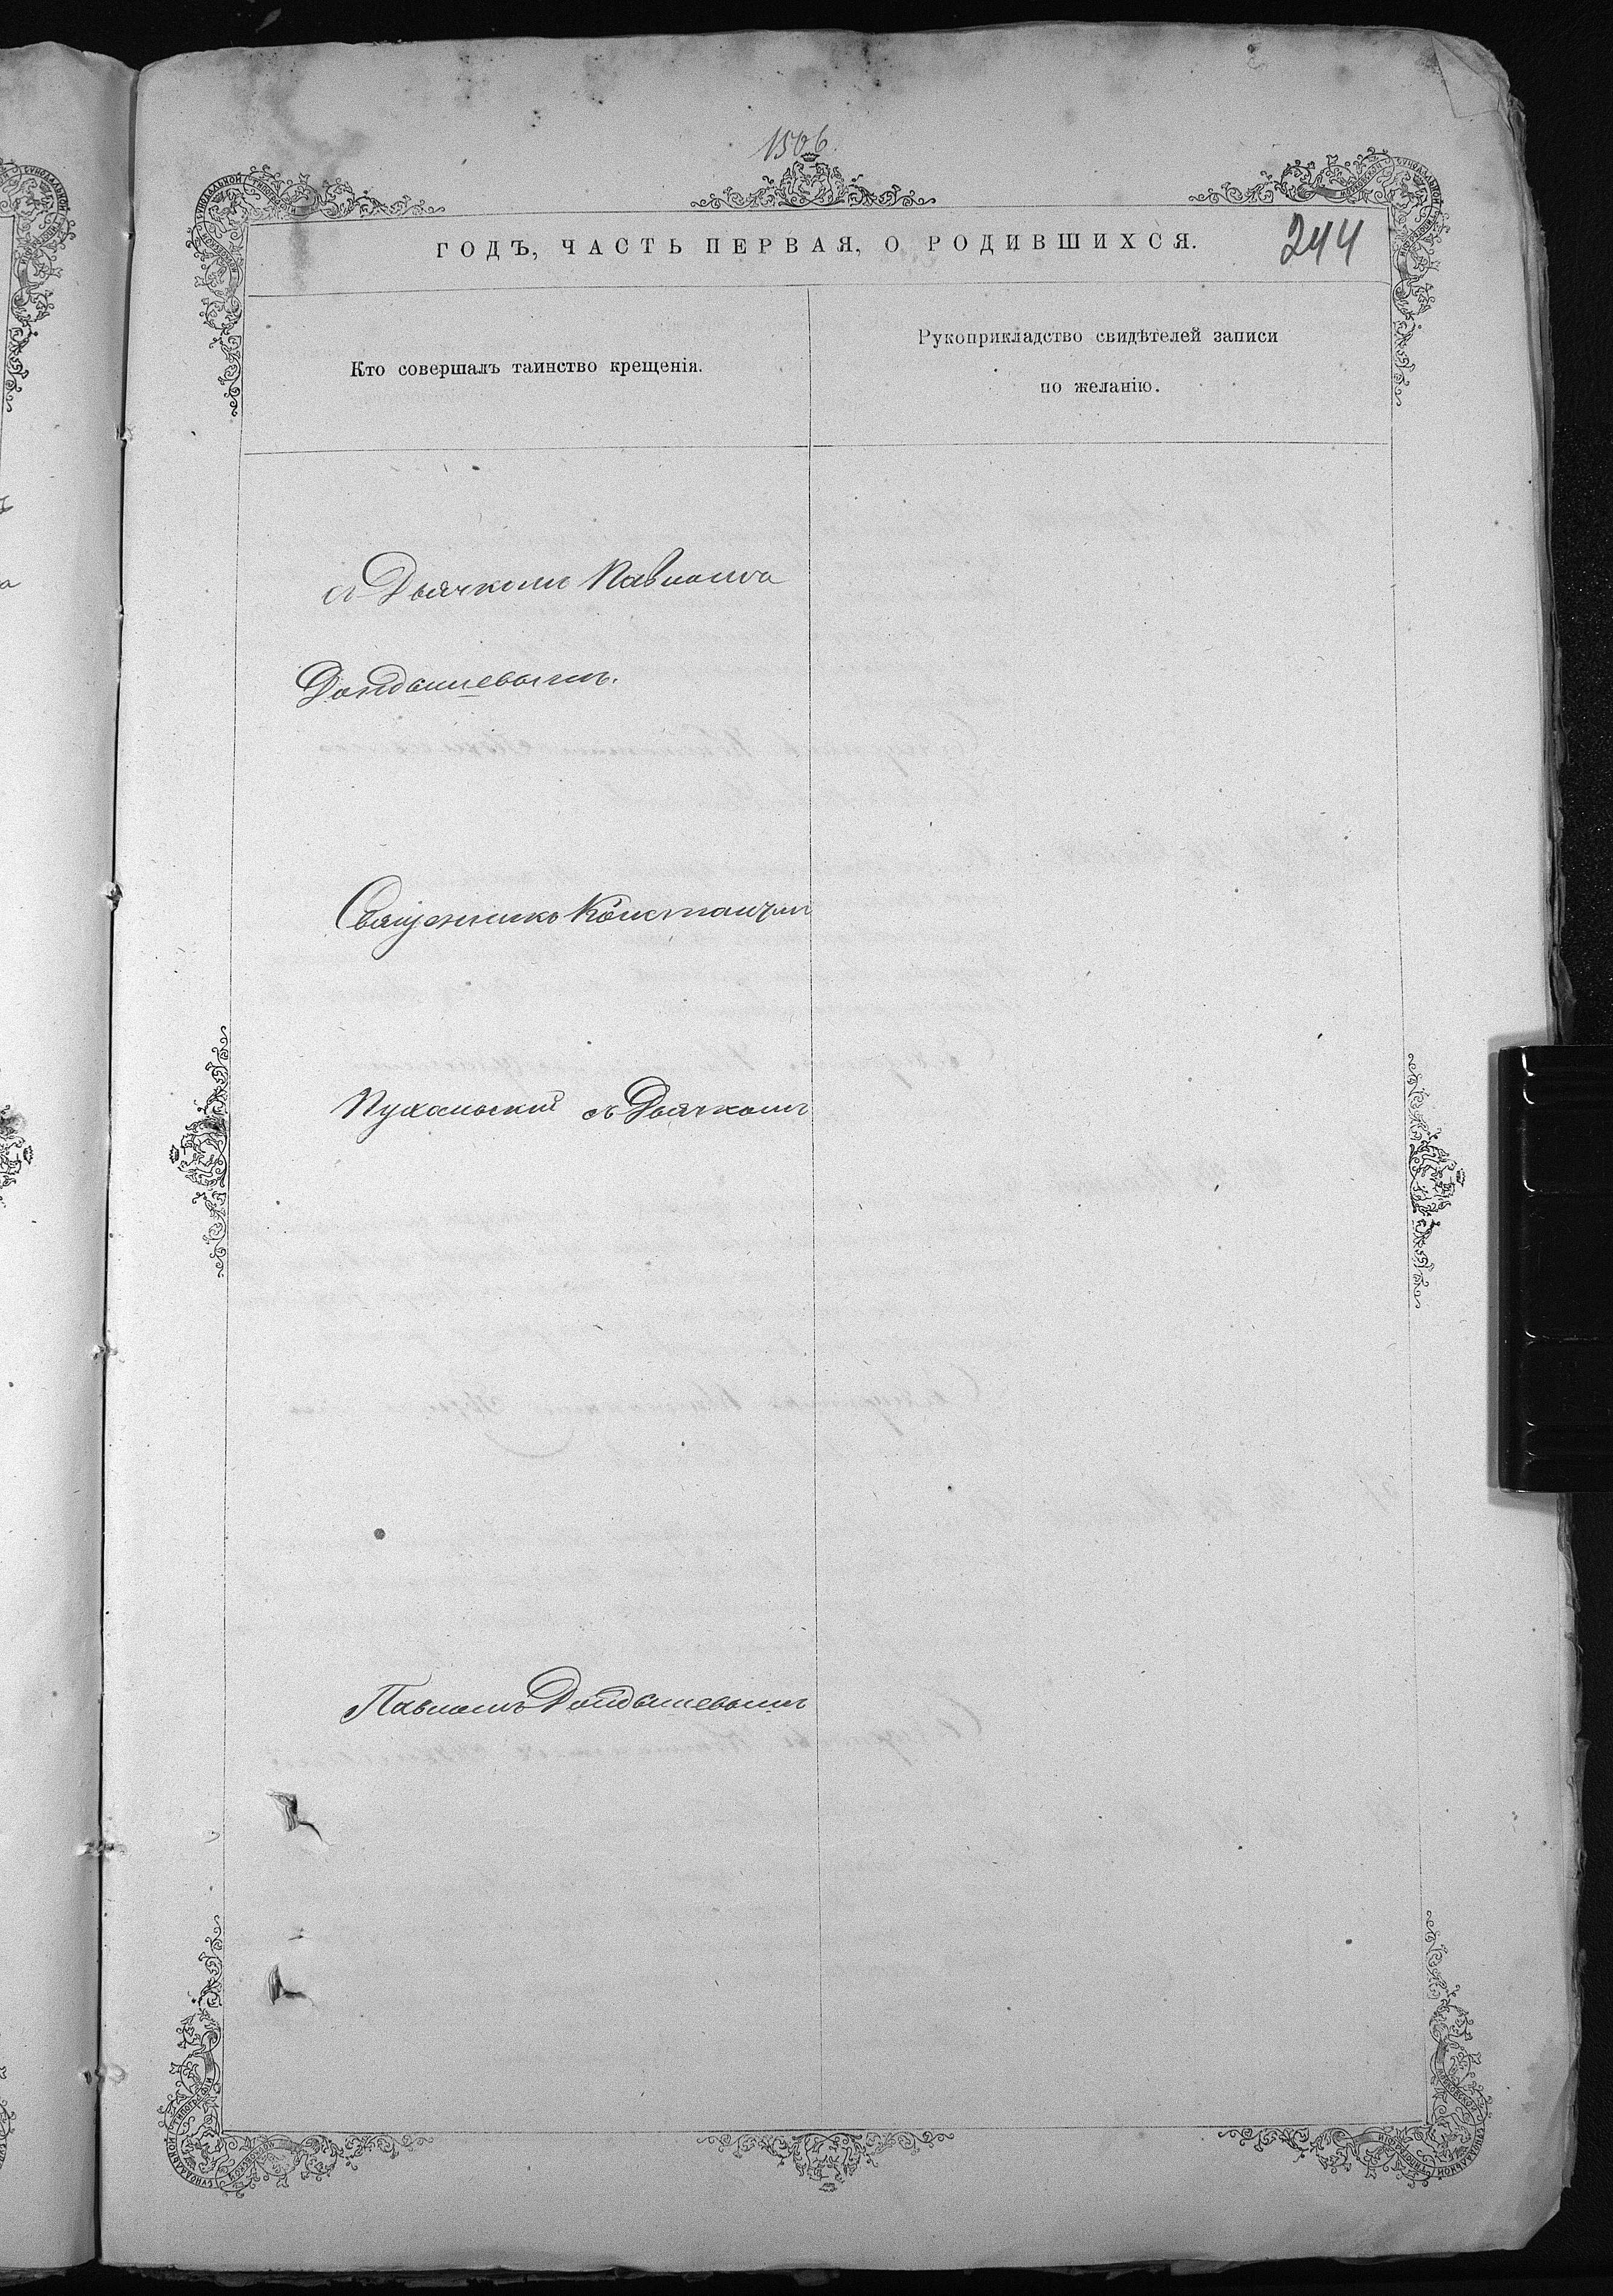 1506.
ГОДЪ, ЧАСТЬ ПЕРВАЯ, О РОДИВШИХСЯ.
244
Кто совершалъ таинство крещенія.
Рукоприкладство свидѣтелей записи
по желанію.
съ Дьячкомъ Павломъ
Дандышевымъ.
Священникъ Константин
Пухальскій съ Дьячкомъ
Павломъ Дандышевымъ